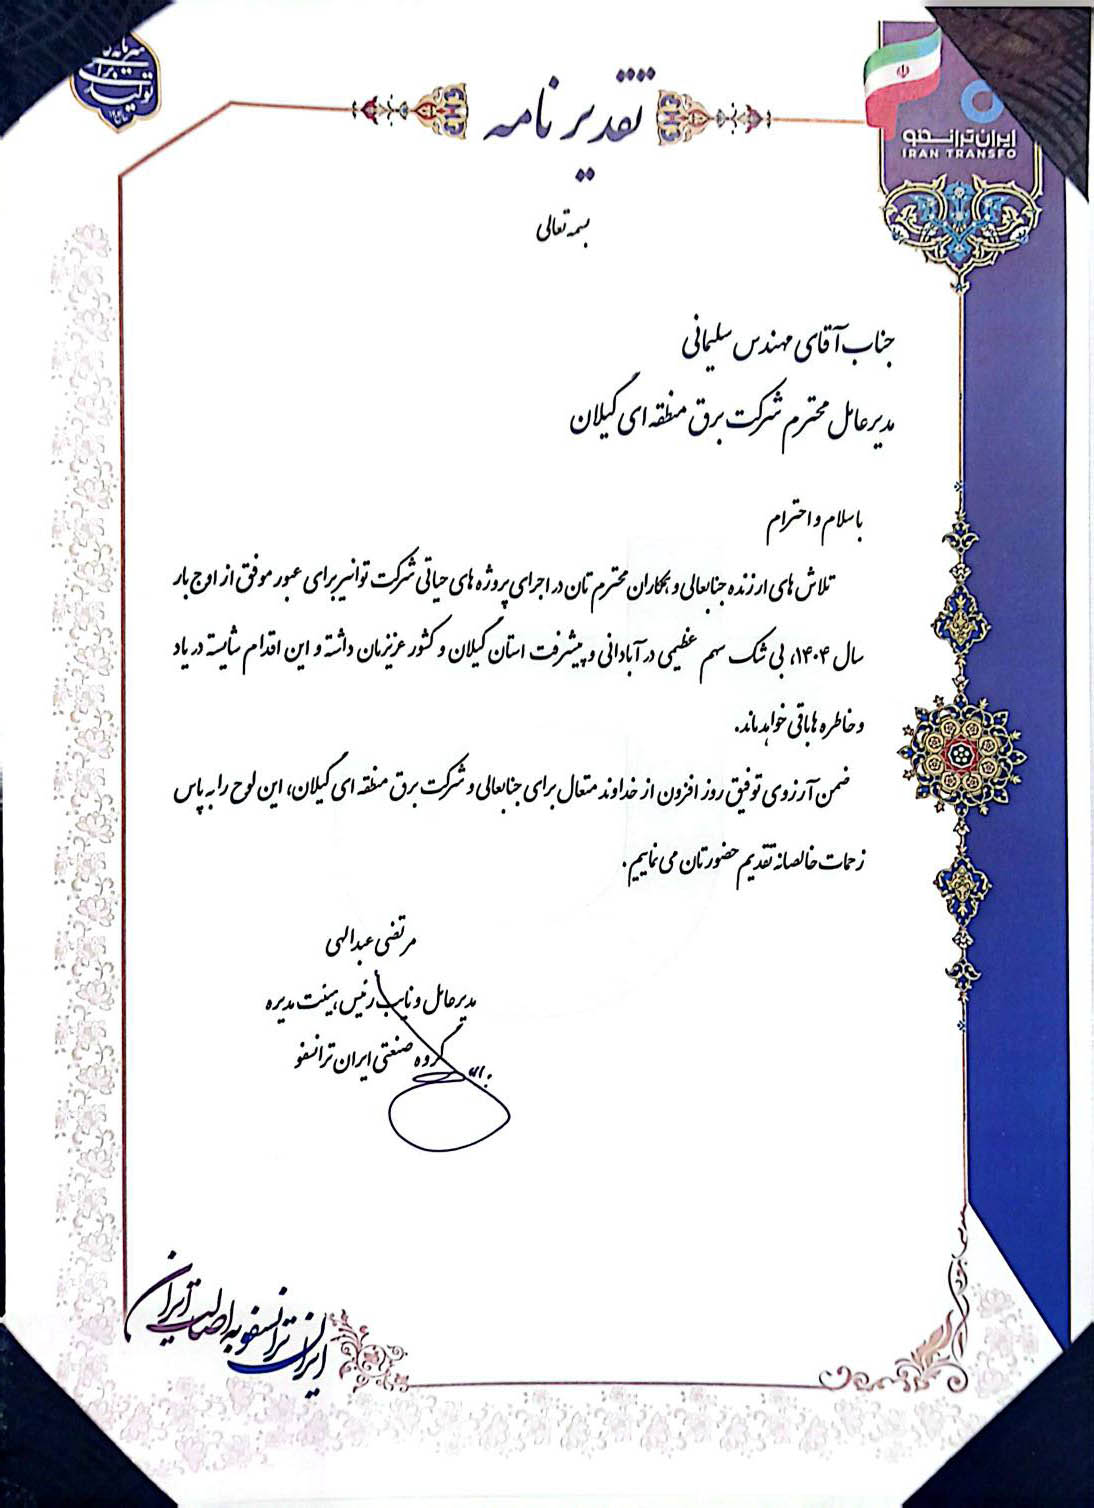 سرمایه
برای
تولید
ایران ترانسفو
IRAN TRANSFO
تقدیر نامه
بسمه تعالی
جناب آقای مهندس سلیمانی
مدیرعامل محترم شرکت برق منطقه ای گیلان
با سلام و احترام
تلاش های ارزنده جنابعالی و همکاران محترم تان در اجرای پروژه های حیاتی شرکت توانیر برای عبور موفق از اوج بار
سال ۱۴۰۴، بی شک سهم عظیمی در آبادانی و پیشرفت استان گیلان و کشور عزیزمان داشته و این اقدام شایسته در یاد
و خاطره ها باقی خواهد ماند.
ضمن آرزوی توفیق روز افزون از خداوند متعال برای جنابعالی و شرکت برق منطقه ای گیلان، این لوح را به پاس
زحمات خالصانه تقدیم حضورتان می نماییم.
مرتضی عبدالهی
مدیرعامل و نایب رئیس هیئت مدیره
گروه صنعتی ایران ترانسفو
ایران ترانسفو به اصالت ایران